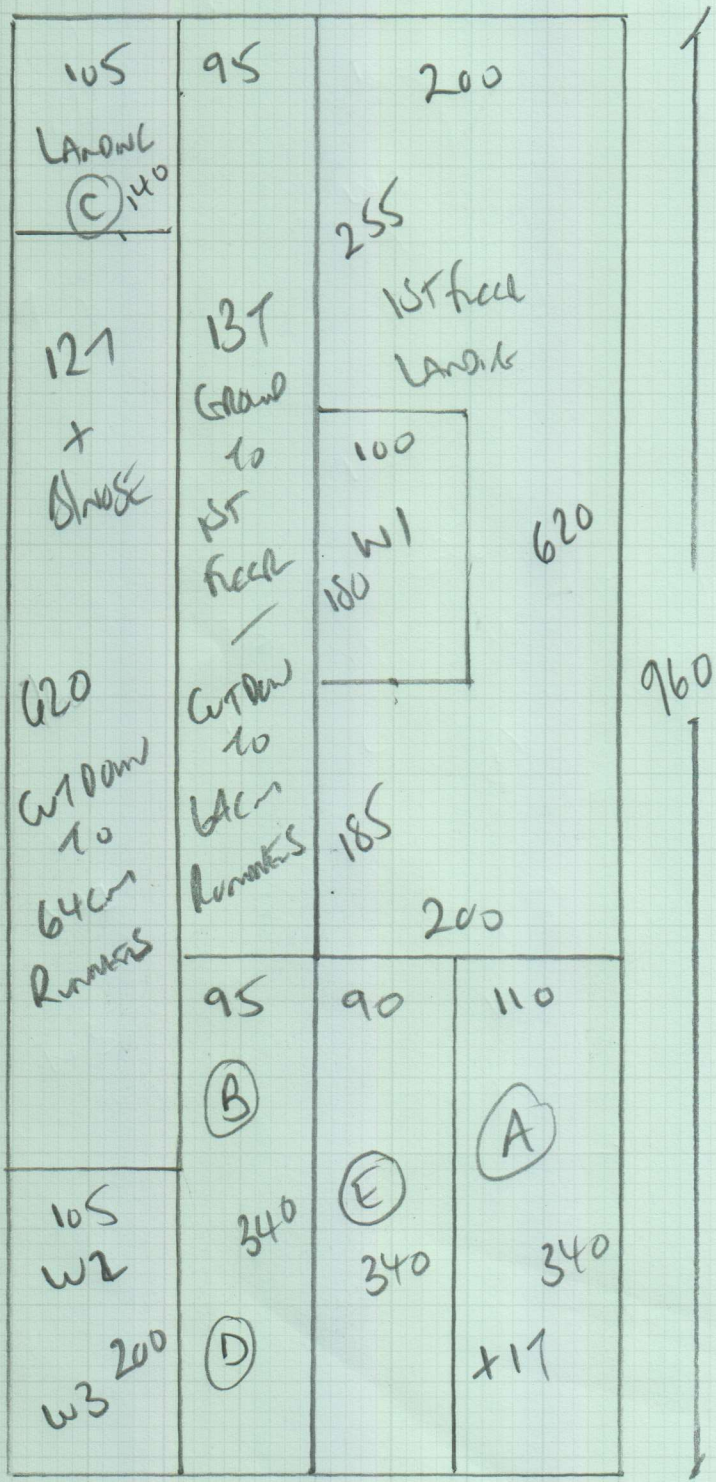 105
LANDING
C 140
12T
+
B/NOSE
620
CUT DOWN
TO
64cm
RUNNERS
105
W2
200
W3
95
13T
GROUND
TO
1ST
FLOOR
/
CUT DOWN
TO
64cm
RUNNERS
95
B
340
D
200
255
1ST FLOOR
LANDING
100
W1
180
620
185
200
90
E
340
110
A
340
+1T
960